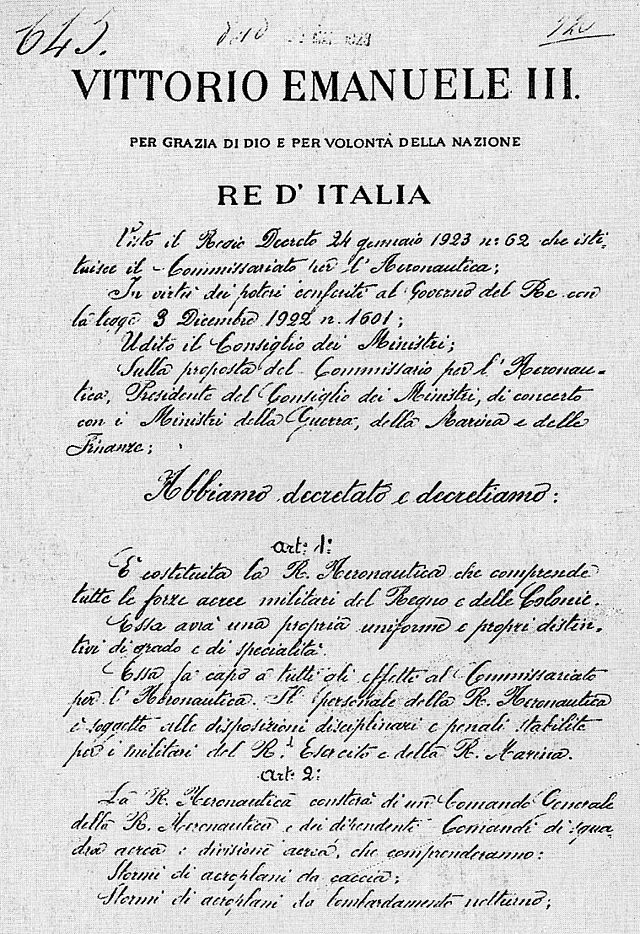 645.
1923
VITTORIO EMANUELE III.
PER GRAZIA DI DIO E PER VOLONTÀ DELLA NAZIONE
RE D'ITALIA
Visto il Regio Decreto 24 gennaio 1923 n: 62 che isti-
tuisce il Commissariato per l'Aeronautica;
In virtù dei poteri conferiti al Governo del Re con
la legge 3 Dicembre 1922 n. 1601;
Udito il Consiglio dei Ministri;
Sulla proposta del Commissario per l'Aeronau-
tica, Presidente del Consiglio dei Ministri, di concerto
con i Ministri della Guerra, della Marina e delle
Finanze;
Abbiamo decretato e decretiamo:
Art: 1:
E' costituita la R. Aeronautica che comprende
tutte le forze aeree militari del Regno e delle Colonie.
Essa avrà una propria uniforme e propri distin-
tivi di grado e di specialità.
Essa fa capo a tutti gli effetti al Commissariato
per l'Aeronautica. Il personale della R. Aeronautica
è soggetto alle disposizioni disciplinari e penali stabilite
per i militari del R. Esercito e della R. Marina.
Art: 2:
La R. Aeronautica consterà di un Comando Generale
della R. Aeronautica e dei dipendenti Comandi di squa-
dra aerea e divisione aerea, che comprenderanno:
Stormi di aeroplani da caccia;
Stormi di aeroplani da bombardamento notturno;